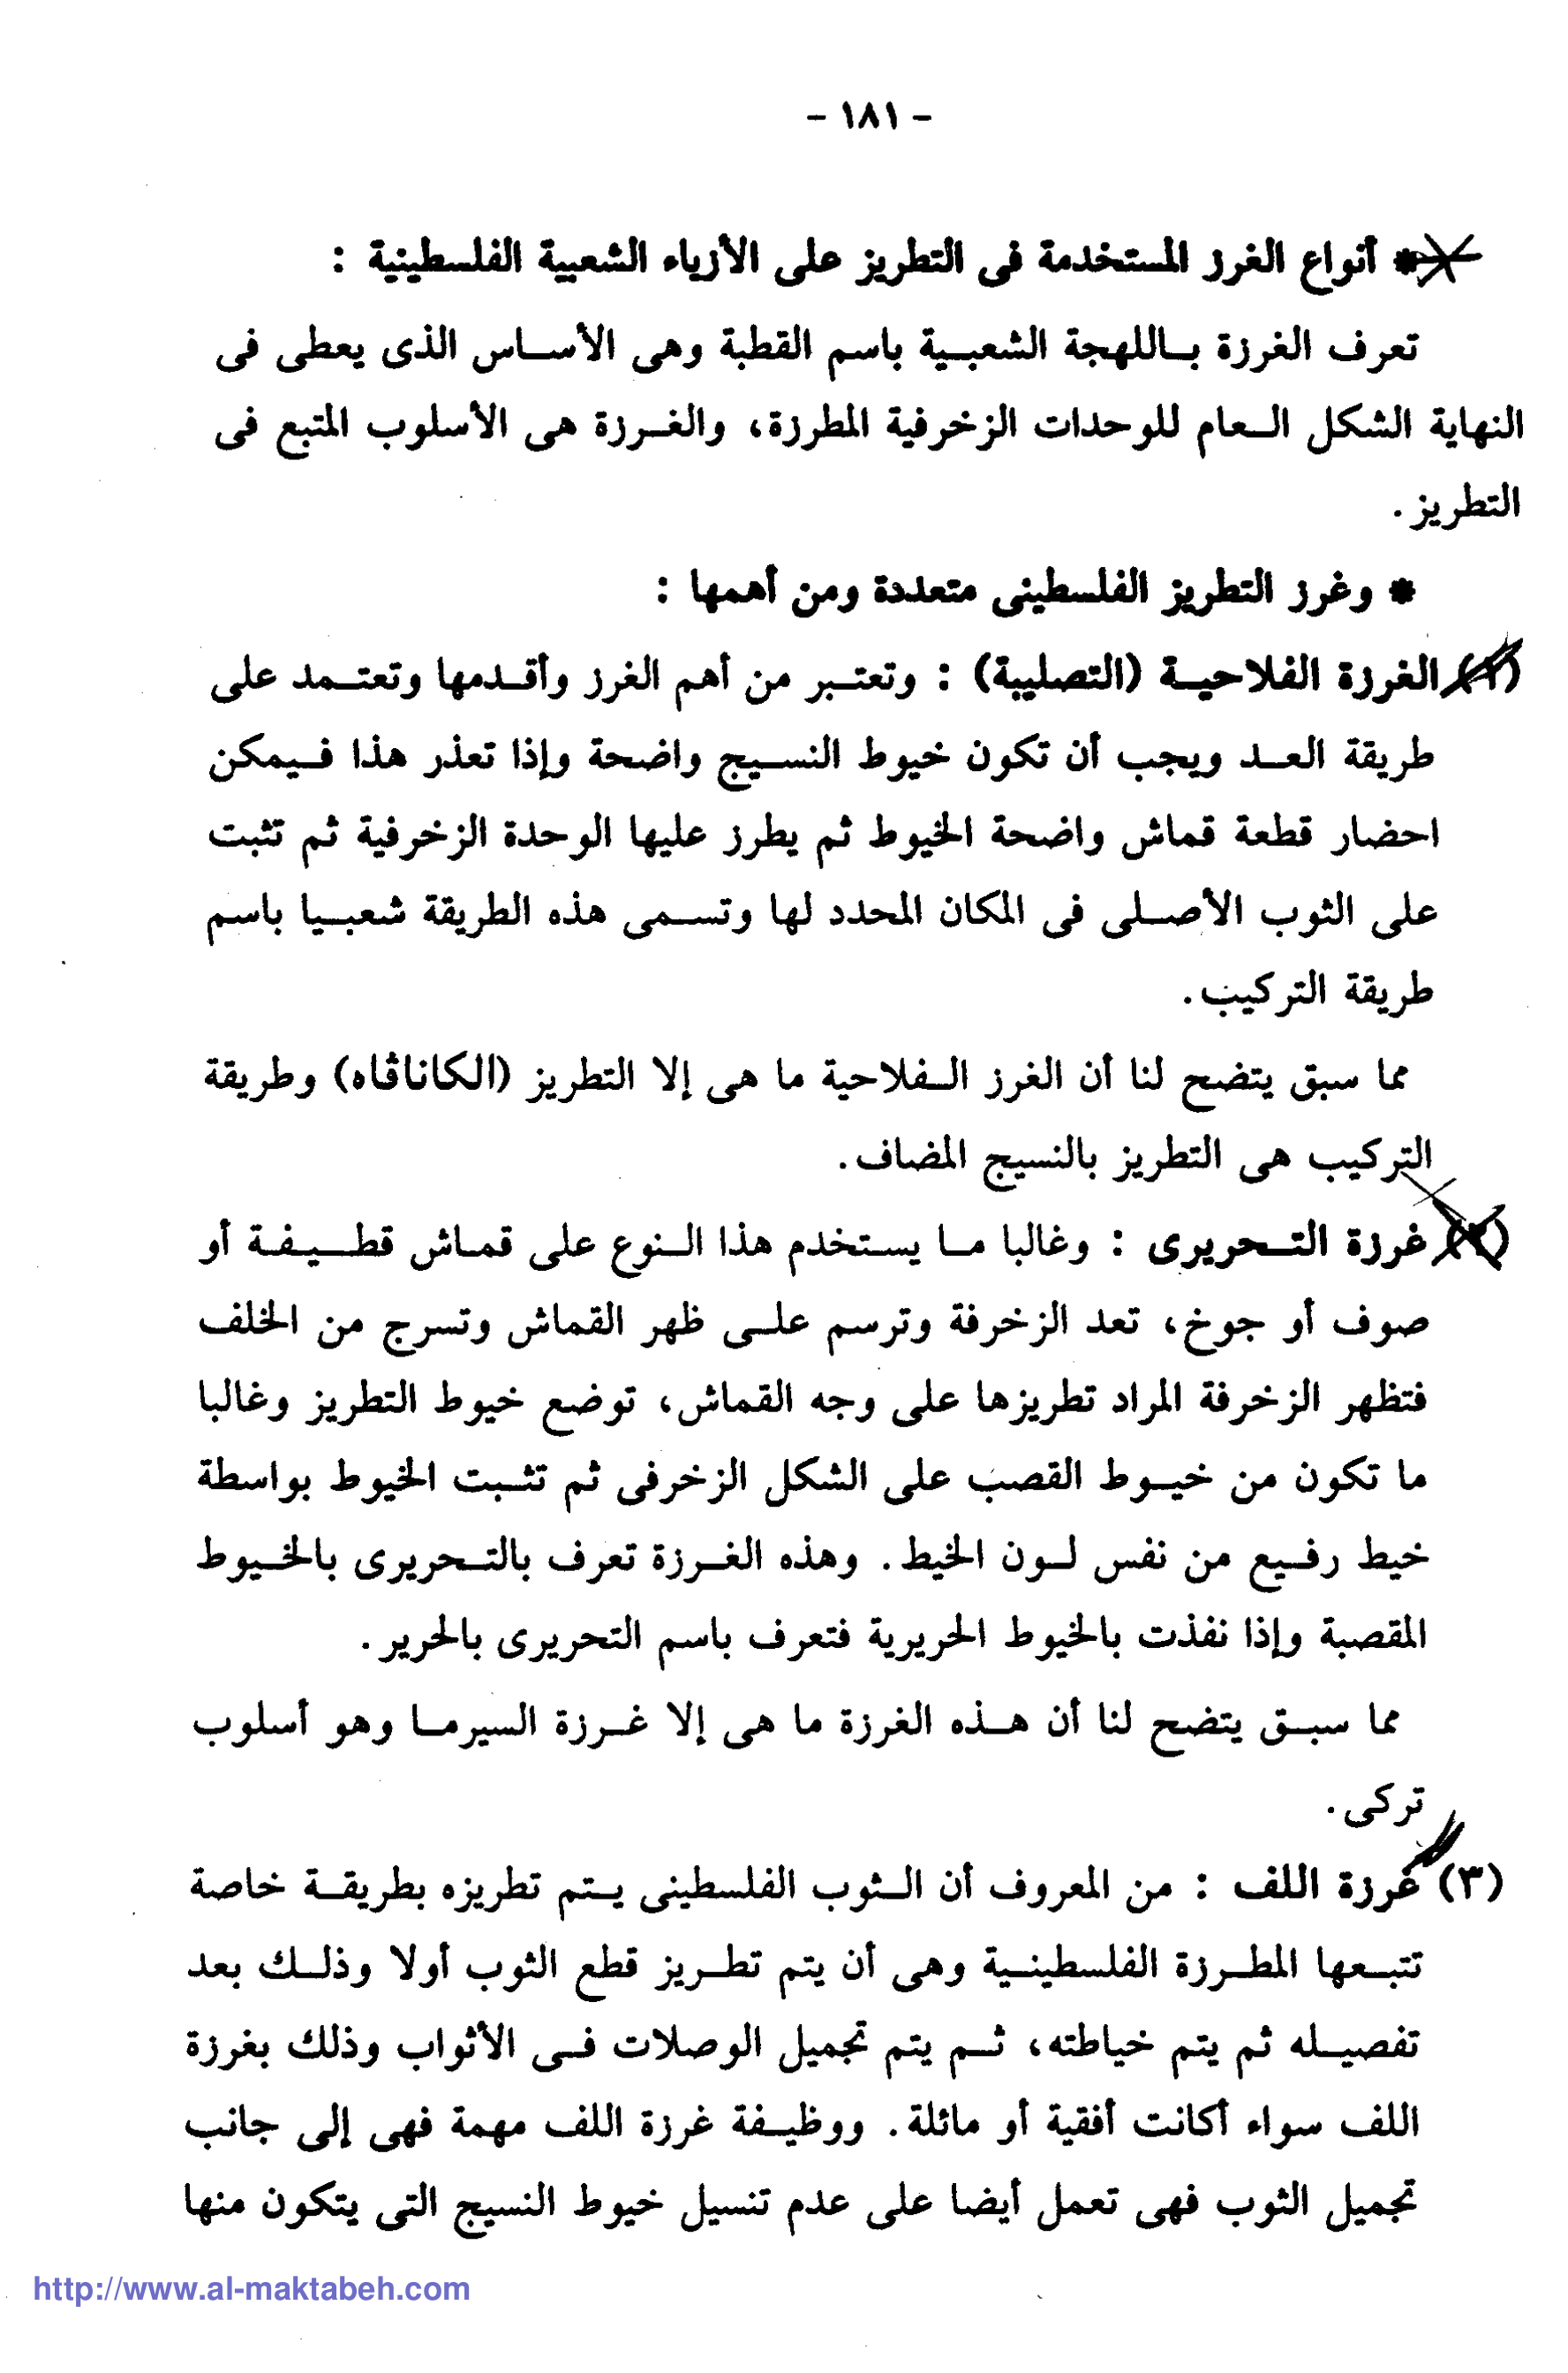 - ١٨١ -
* أنواع الغرز المستخدمة فى التطريز على الأزياء الشعبية الفلسطينية :
تعرف الغرزة باللهجة الشعبية باسم القطبة وهى الأساس الذى يعطى فى
النهاية الشكل العام للوحدات الزخرفية المطرزة، والغرزة هى الأسلوب المتبع فى
التطريز .
* وغرز التطريز الفلسطينى متعددة ومن أهمها :
(١) الغرزة الفلاحية (التصليبة) : وتعتبر من أهم الغرز وأقدمها وتعتمد على
طريقة العد ويجب أن تكون خيوط النسيج واضحة وإذا تعذر هذا فيمكن
احضار قطعة قماش واضحة الخيوط ثم يطرز عليها الوحدة الزخرفية ثم تثبت
على الثوب الأصلى فى المكان المحدد لها وتسمى هذه الطريقة شعبيا باسم
طريقة التركيب .
مما سبق يتضح لنا أن الغرز الفلاحية ما هى إلا التطريز (الكاناڤاه) وطريقة
التركيب هى التطريز بالنسيج المضاف .
(٢) غرزة التحريرى : وغالبا ما يستخدم هذا النوع على قماش قطيفة أو
صوف أو جوخ، تعد الزخرفة وترسم على ظهر القماش وتسرج من الخلف
فتظهر الزخرفة المراد تطريزها على وجه القماش، توضع خيوط التطريز وغالبا
ما تكون من خيوط القصب على الشكل الزخرفى ثم تثبت الخيوط بواسطة
خيط رفيع من نفس لون الخيط . وهذه الغرزة تعرف بالتحريرى بالخيوط
المقصبة وإذا نفذت بالخيوط الحريرية فتعرف باسم التحريرى بالحرير .
مما سبق يتضح لنا أن هذه الغرزة ما هى إلا غرزة السيرما وهو أسلوب
تركى .
(٣) غرزة اللف : من المعروف أن الثوب الفلسطينى يتم تطريزه بطريقة خاصة
تتبعها المطرزة الفلسطينية وهى أن يتم تطريز قطع الثوب أولا وذلك بعد
تفصيله ثم يتم خياطته، ثم يتم تجميل الوصلات فى الأثواب وذلك بغرزة
اللف سواء أكانت أفقية أو مائلة . ووظيفة غرزة اللف مهمة فهى إلى جانب
تجميل الثوب فهى تعمل أيضا على عدم تنسيل خيوط النسيج التى يتكون منها
http://www.al-maktabeh.com